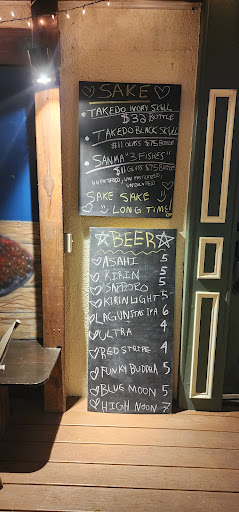 SAKE
TAKEDO IVORY SKULL
$32 BOTTLE
TAKEDO BLACK SKULL
$11 GLASS $75 BOTTLE
SANMA "3 FISHES"
$11 GLASS $75 BOTTLE
UNFILTERED, UNPASTEURIZED
UNDILUTED
SAKE SAKE
LONG TIME!
BEER
ASAHI 5
KIRIN 5
SAPPORO 5
KIRIN LIGHT 5
LAGUNITAS IPA 6
ULTRA 4
RED STRIPE 4
FUNKY BUDDHA 5
BLUE MOON 5
HIGH NOON 7